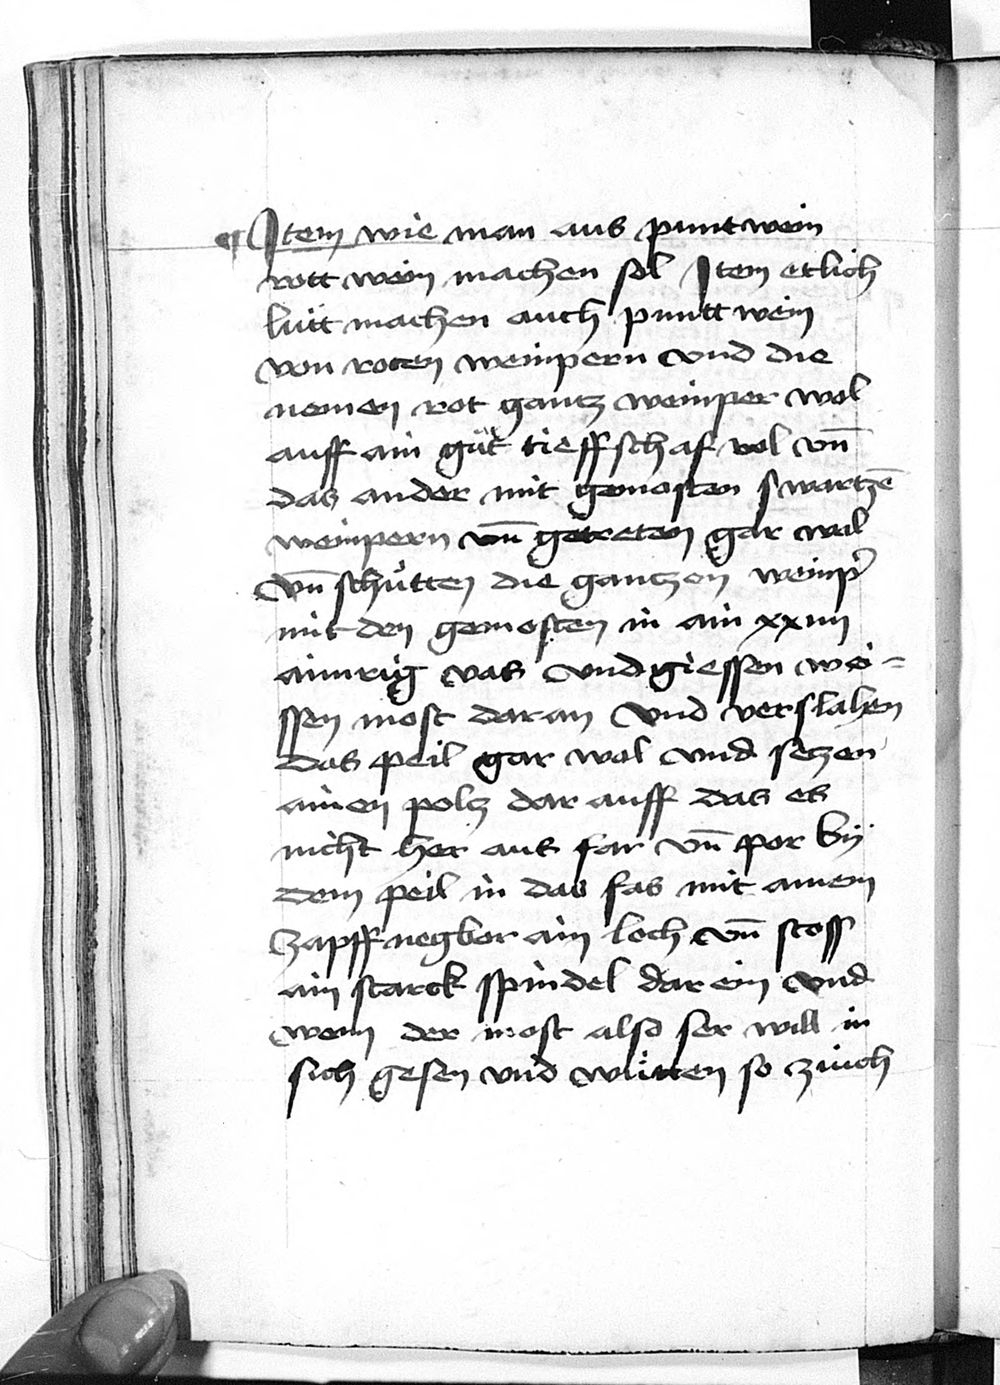 ¶ Item wie man aus puntwein
rott wein machen sol Item etlich
lütt machen auch puntt wein
von roten weinpern vnd die
nemen rot gantz weinper wol
auff ain gůt tieff schaf vol vn̄
das ander mit gemosten swartzē
weinpern vn̄ getreten gar wol
vn̄ schütten die gantzen weinp̄
mit den gemosten in ain xxiiii
aimrig vas vnd giessen wei-
ssen most daran vnd verslahen
das peil gar wol vnd setzen
ainen poltz dar auff das es
nicht her aus far vn̄ por bÿ
dem peil in das fas mit ainem
zapffnegbor ain loch vn̄ stoss
ain starck spindel dar ein vnd
wenn der most also ser will in
sich gesen vnd wütten so züch